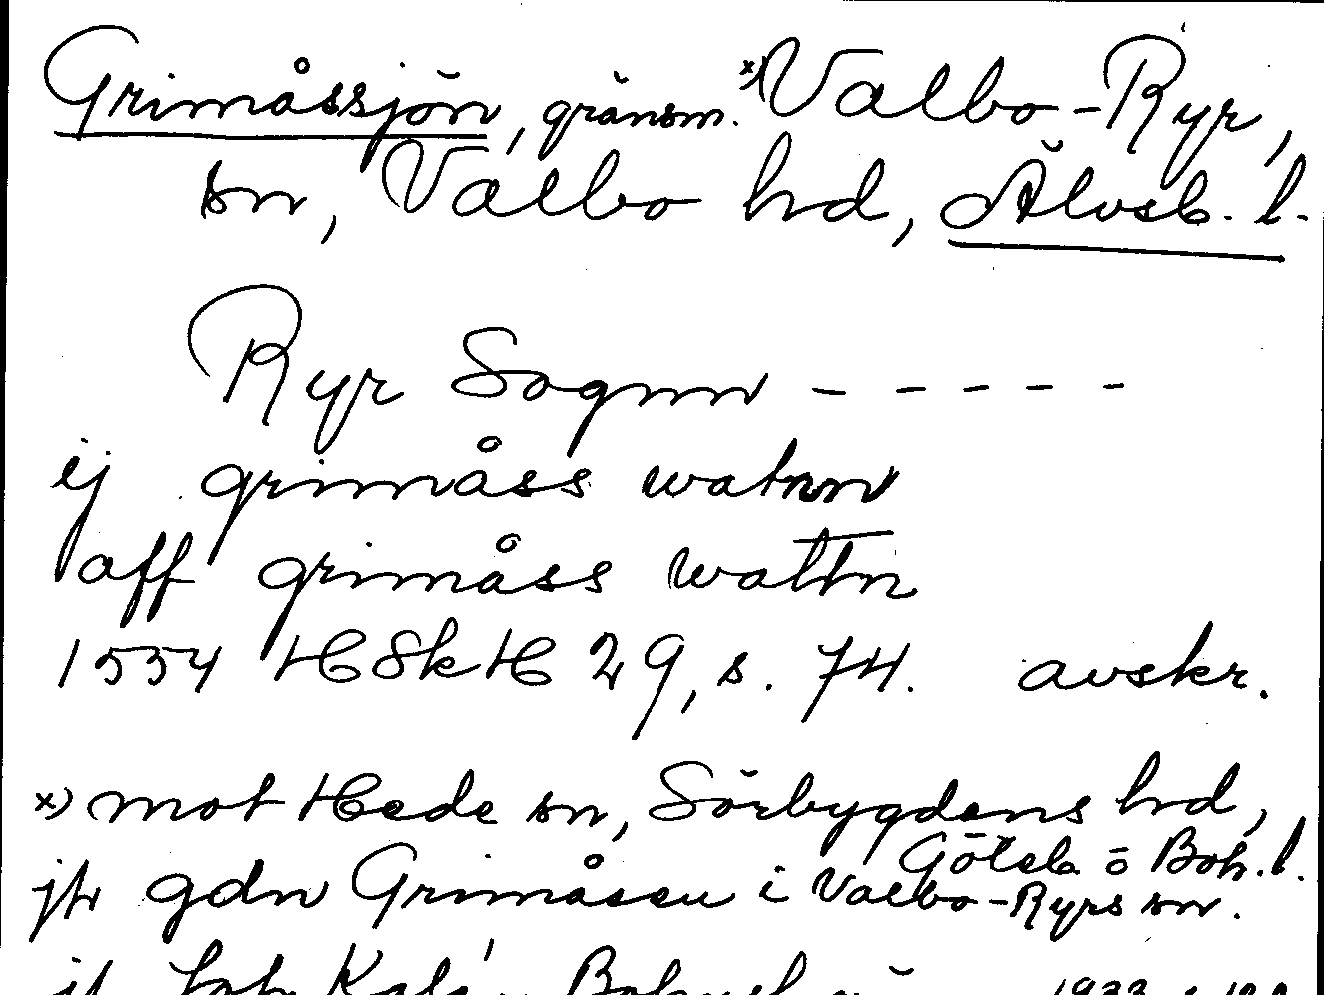 Grimåssjön, gränsm. x) Valbo-Ryr,
sn, Valbo hd, Älvsb. l.
Ryr Sognn - - - - -
ej grimåss watnn
aff grimåss wattn
1554 HSkH 29, s. 74. avskr.
x) mot Hede sn, Sörbygdens hd,
Göteb. o Boh. l.
jfr gdn Grimåsen i Valbo-Ryrs sn.